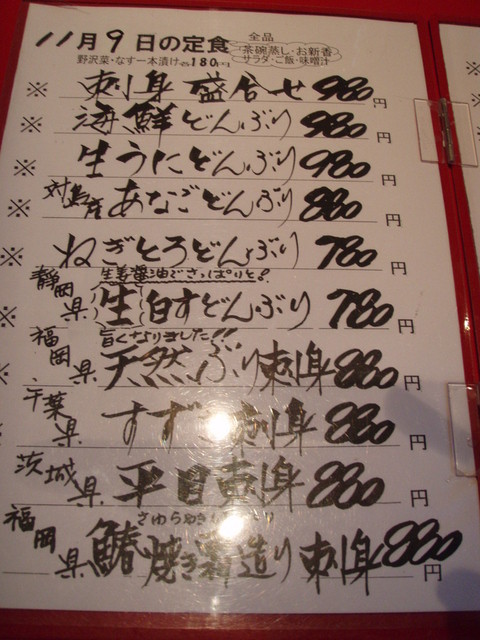 11月9日の定食
全品
茶碗蒸し・お新香
サラダ・ご飯・味噌汁
野沢菜・なす一本漬け180
※ 刺身盛合せ 980円
※ 海鮮どんぶり 980円
※ 生うにどんぶり 980円
※ 対馬産 あなごどんぶり 880円
※ ねぎとろどんぶり 780円
生姜醤油でさっぱりと!
※ 静岡県 生白すどんぶり 780円
旨くなりました!!
※ 福岡県 天然ぶり刺身 880円
千葉県 すずき刺身 880円
茨城県 平目刺身 880円
さわらやき
福岡県 鰆焼き霜造り刺身 880円